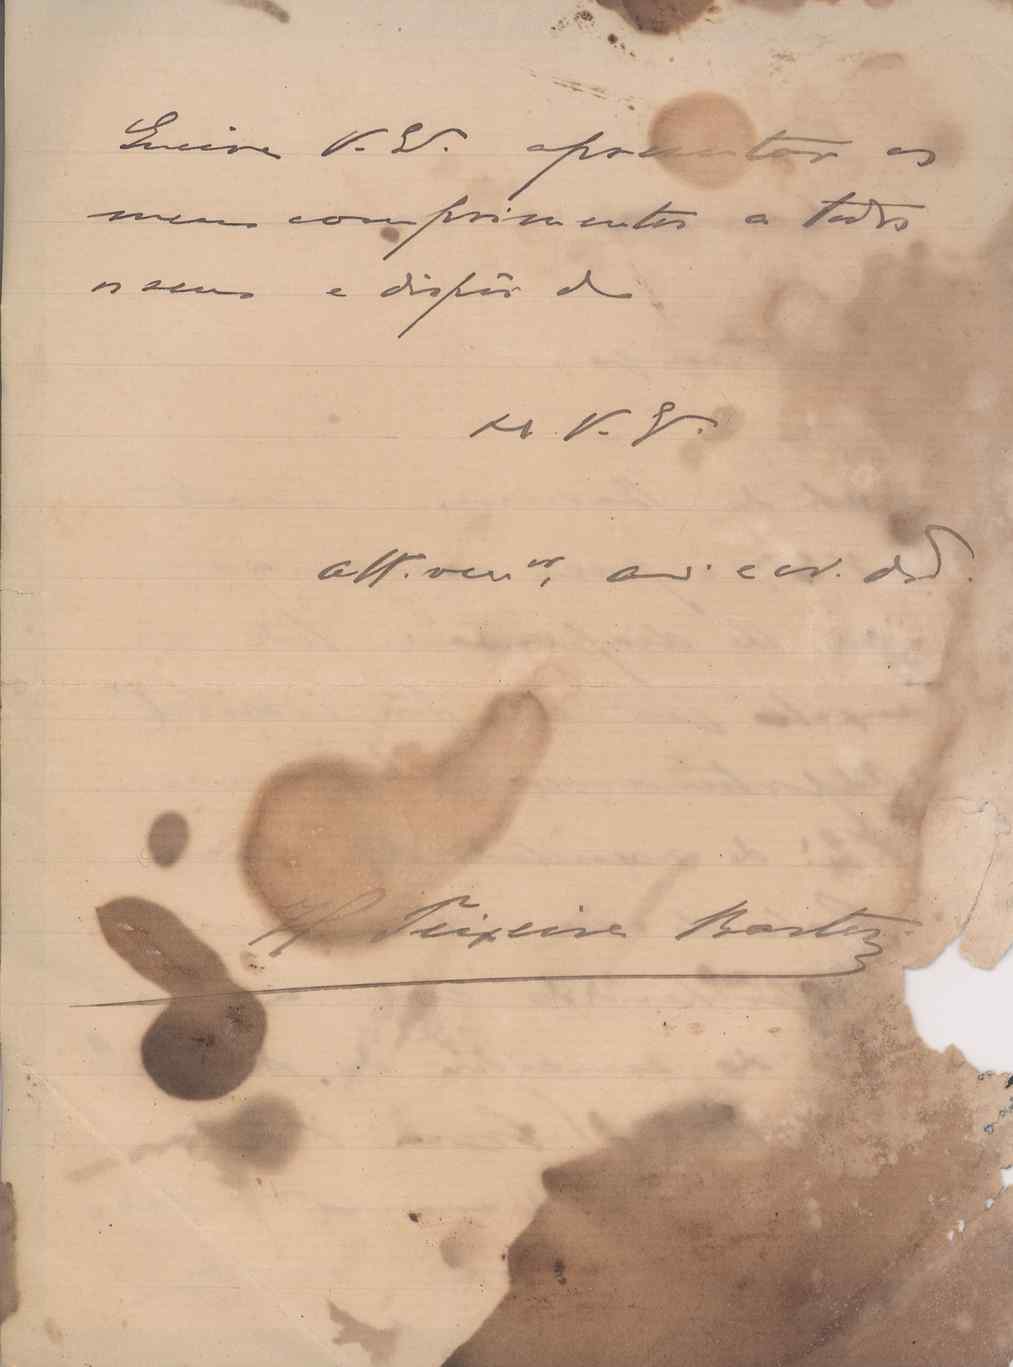 Queira V. Ex. apresentar os
meus comprimentos a todos
os seus e dispôr de
de V. Ex.
att. ven.or, am.o e cr. obr.
Teixeira Bastos